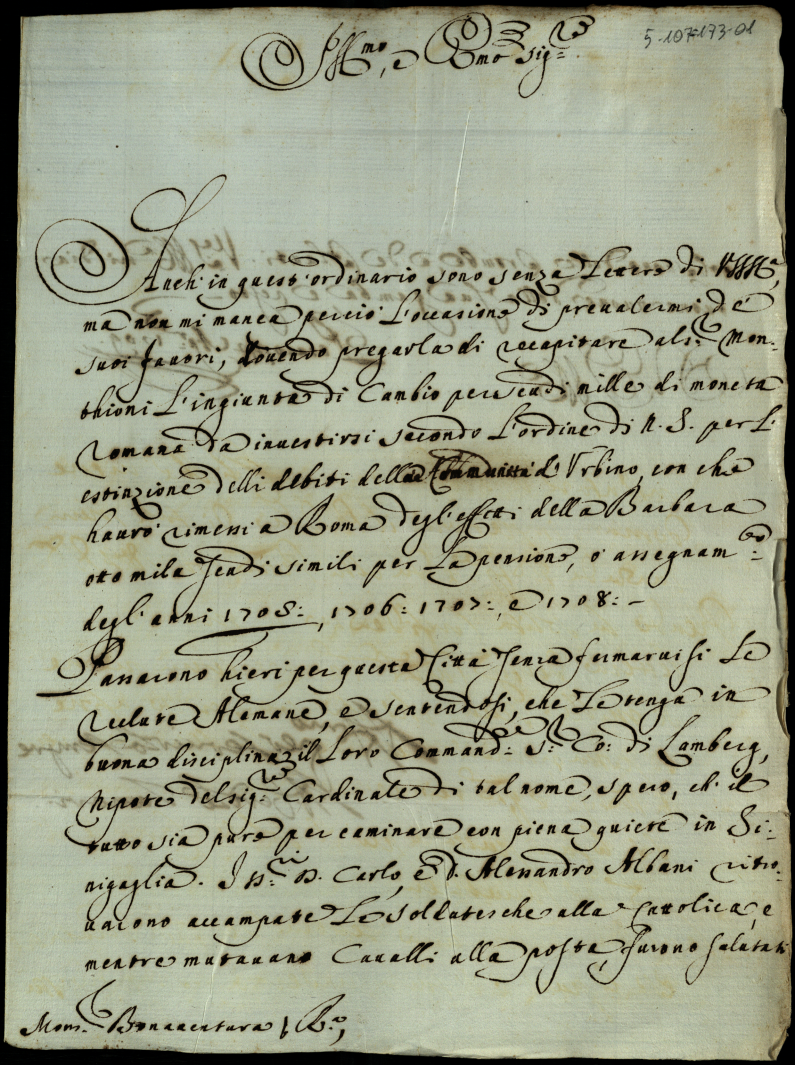 5-107-173-01
Ill.mo, e R.mo Sig.re
Anch'in quest'ordinario sono senza lettere di V.S. Ill.ma,
ma non mi manca perciò l'occasione di prevalermi de'
suoi favori, dovendo pregarla di recapitare al S.r Mon-
thioni l'ingiunta di Cambio per scudi mille di moneta
romana da investirsi secondo l'ordine di N. S. per l'
estinzione delli debiti della Communità d'Urbino, con che
havrò rimessi a Roma degl'effetti della Barbara
otto mila scudi simili per la pensione, o assegnam.to
degl'anni 1705:, 1706: 1707:, e 1708: -
Passarono hieri per questa Città senza fermarvisi le
reclute Alemane, e sentendosi, che le tenga in
buona disciplina il loro Command.te S.r Co: di Lamberg,
Nipote del sig.r Cardinale di tal nome, spero, ch'il
tutto sia pure per caminare con piena quiete in Si-
nigaglia. I SS.ri D. Carlo, e D. Alessandro Albani ritro-
varono accampate le soldatesche alla Cattolica, e
mentre mutavano Cavalli alla posta, furono salutati
Mons.r Bonaventura R.a